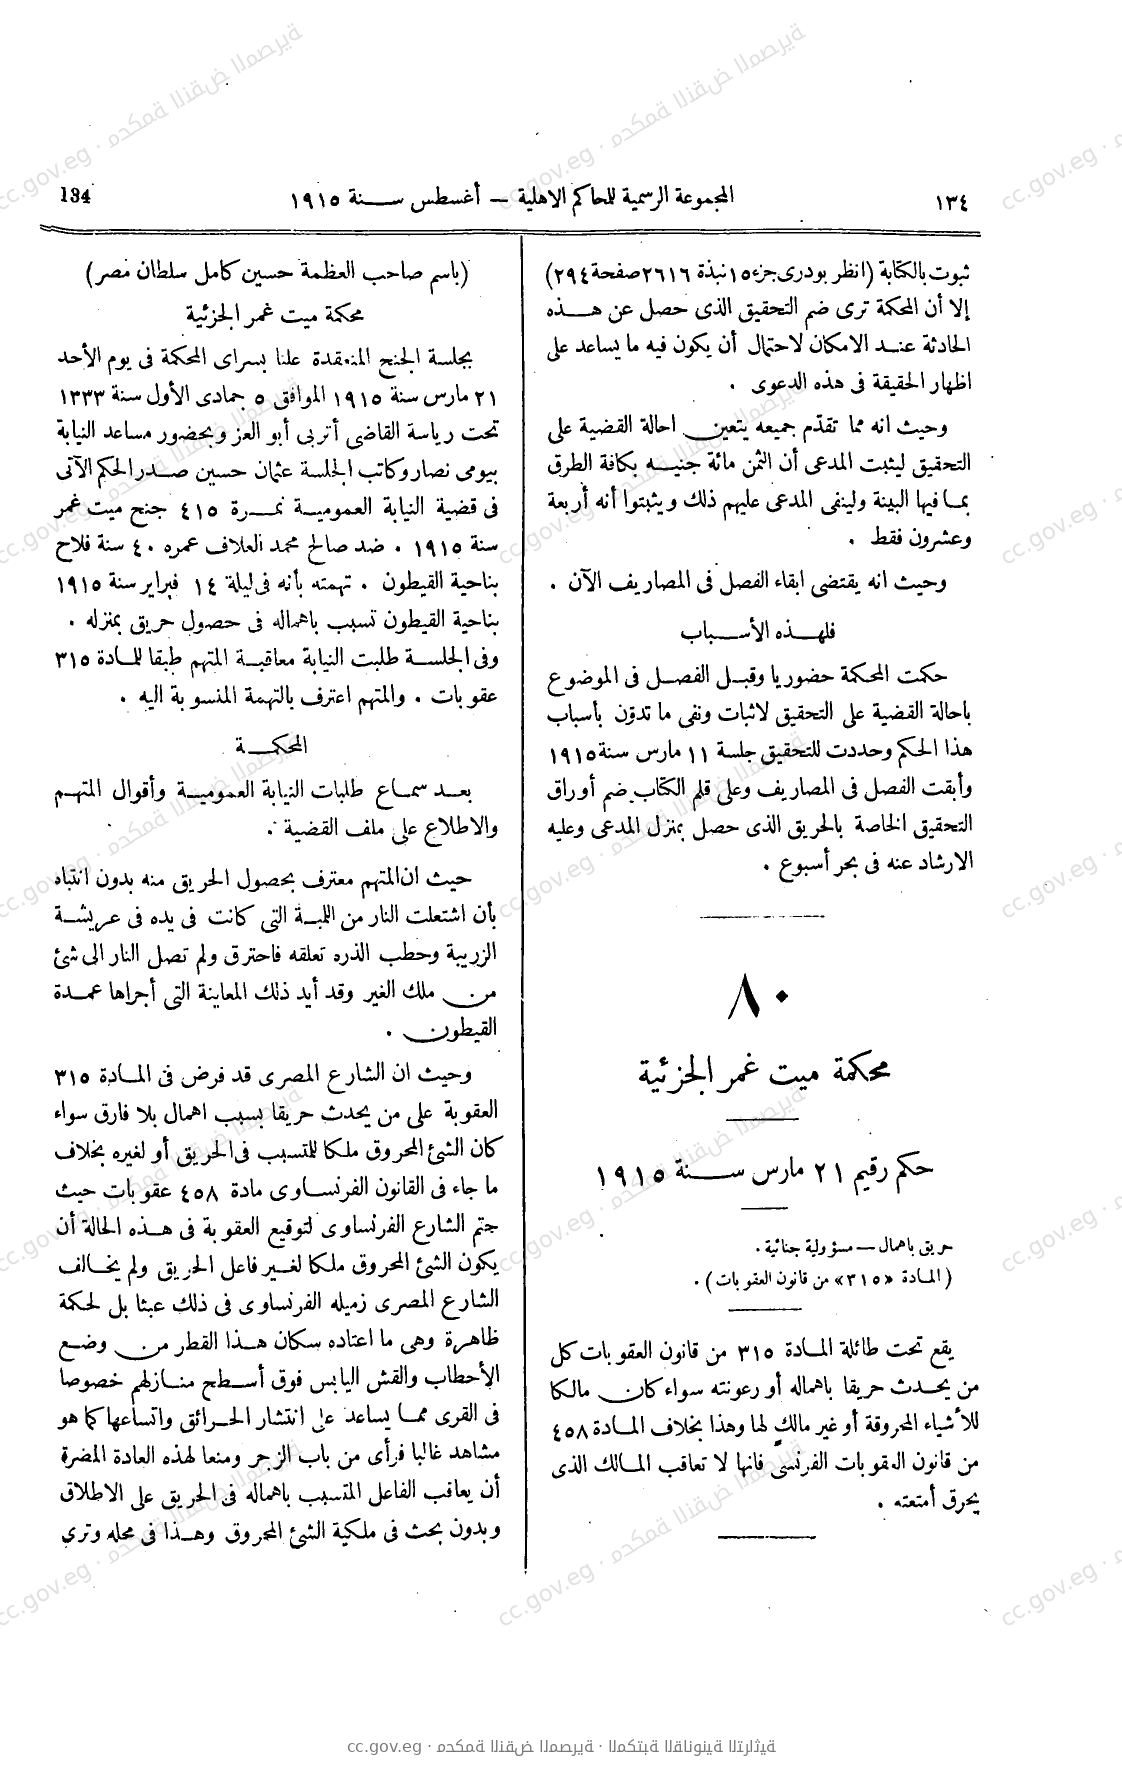 ١٣٤
المجموعة الرسمية للمحاكم الاهلية — أغسطس سنة ١٩١٥
134
ثبوت بالكتابة (انظر بودرى جزء ١٥ نبذة ٢٦١٦ صفحة ٢٩٤)
إلا أن المحكمة ترى ضم التحقيق الذى حصل عن هذه
الحادثة عند الامكان لاحتمال أن يكون فيه ما يساعد على
اظهار الحقيقة فى هذه الدعوى .
وحيث انه مما تقدّم جميعه يتعين احالة القضية على
التحقيق ليثبت المدعى أن الثمن مائة جنيه بكافة الطرق
بما فيها البينة ولينفى المدعى عليهم ذلك ويثبتوا أنه أربعة
وعشرون فقط .
وحيث انه يقتضى ابقاء الفصل فى المصاريف الآن .
فلهذه الأسباب
حكمت المحكمة حضوريا وقبل الفصل فى الموضوع
باحالة القضية على التحقيق لاثبات ونفى ما تدوّن بأسباب
هذا الحكم وحددت للتحقيق جلسة ١١ مارس سنة ١٩١٥
وأبقت الفصل فى المصاريف وعلى قلم الكتاب ضم أوراق
التحقيق الخاصة بالحريق الذى حصل بمنزل المدعى وعليه
الارشاد عنه فى بحر أسبوع .
٨٠
محكمة ميت غمر الجزئية
حكم رقيم ٢١ مارس سنة ١٩١٥
حريق باهمال — مسؤولية جنائية .
(المادة «٣١٥» من قانون العقوبات) .
يقع تحت طائلة المادة ٣١٥ من قانون العقوبات كل
من يحدث حريقا باهماله أو رعونته سواء كان مالكا
للأشياء المحروقة أو غير مالك لها وهذا بخلاف المادة ٤٥٨
من قانون العقوبات الفرنسى فانها لا تعاقب المالك الذى
يحرق أمتعته .
(باسم صاحب العظمة حسين كامل سلطان مصر)
محكمة ميت غمر الجزئية
بجلسة الجنح المنعقدة علنا بسراى المحكمة فى يوم الأحد
٢١ مارس سنة ١٩١٥ الموافق ٥ جمادى الأول سنة ١٣٣٣
تحت رياسة القاضى أتربى أبو العز وبحضور مساعد النيابة
بيومى نصار وكاتب الجلسة عثمان حسين صدر الحكم الآتى
فى قضية النيابة العمومية نمرة ٤١٥ جنح ميت غمر
سنة ١٩١٥ . ضد صالح محمد العلاف عمره ٤٠ سنة فلاح
بناحية القيطون . تهمته بأنه فى ليلة ١٤ فبراير سنة ١٩١٥
بناحية القيطون تسبب باهماله فى حصول حريق بمنزله .
وفى الجلسة طلبت النيابة معاقبة المتهم طبقا للمادة ٣١٥
عقوبات . والمتهم اعترف بالتهمة المنسوبة اليه .
المحكمة
بعد سماع طلبات النيابة العمومية وأقوال المتهم
والاطلاع على ملف القضية .
حيث ان المتهم معترف بحصول الحريق منه بدون انتباه
بأن اشتعلت النار من اللمبة التى كانت فى يده فى عريشة
الزريبة وحطب الذره تعلقه فاحترق ولم تصل النار الى شئ
من ملك الغير وقد أيد ذلك المعاينة التى أجراها عمدة
القيطون .
وحيث ان الشارع المصرى قد فرض فى المادة ٣١٥
العقوبة على من يحدث حريقا بسبب اهمال بلا فارق سواء
كان الشئ المحروق ملكا للمتسبب فى الحريق أو لغيره بخلاف
ما جاء فى القانون الفرنساوى مادة ٤٥٨ عقوبات حيث
حتم الشارع الفرنساوى لتوقيع العقوبة فى هذه الحالة أن
يكون الشئ المحروق ملكا لغير فاعل الحريق ولم يخالف
الشارع المصرى زميله الفرنساوى فى ذلك عبثا بل لحكمة
ظاهرة وهى ما اعتاده سكان هذا القطر من وضع
الأحطاب والقش اليابس فوق أسطح منازلهم خصوصا
فى القرى مما يساعد على انتشار الحرائق واتساعها كما هو
مشاهد غالبا فرأى من باب الزجر ومنعا لهذه العادة المضرة
أن يعاقب الفاعل المتسبب باهماله فى الحريق على الاطلاق
وبدون بحث فى ملكية الشئ المحروق وهذا فى محله وترى
cc.gov.eg · محكمة النقض المصرية · المكتبة القانونية التراثية